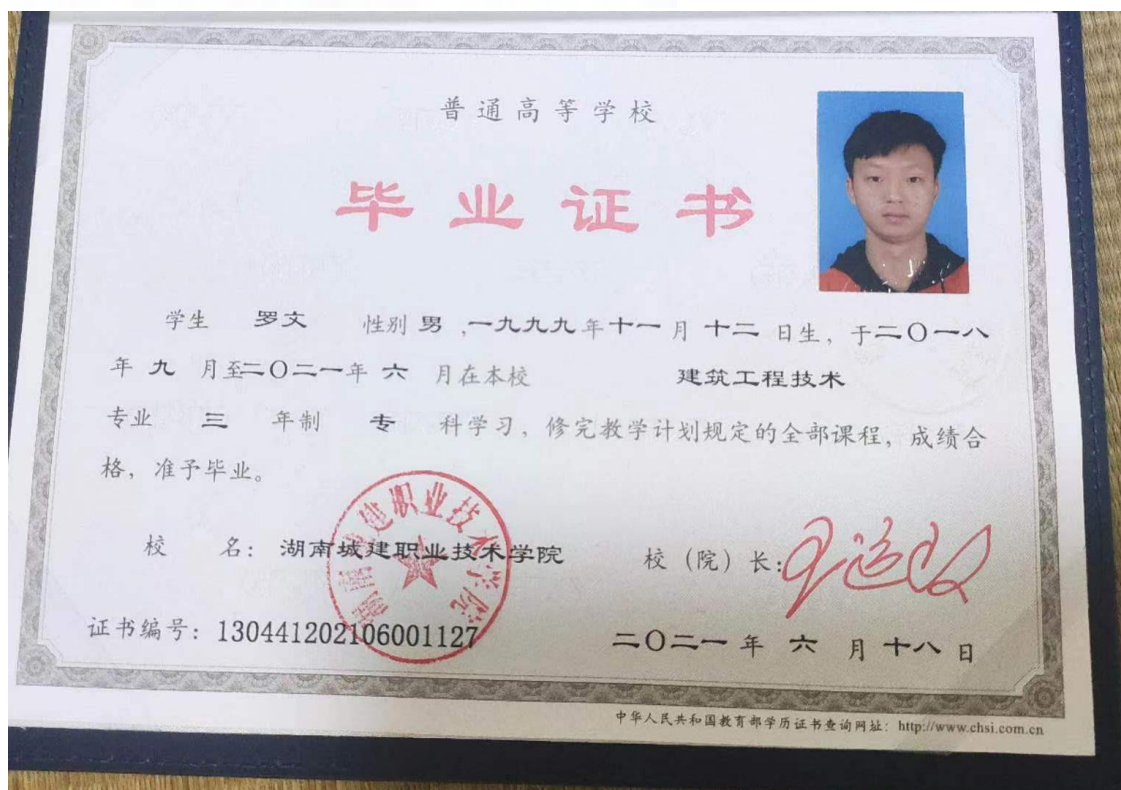 普通高等学校
毕业证书
学生 罗文 性别 男 ,一九九九年十一月十二日生，于二〇一八
年九月至二〇二一年六月在本校 建筑工程技术
专业 三 年制 专 科学习，修完教学计划规定的全部课程，成绩合
格，准予毕业。
校 名：湖南城建职业技术学院
湖南城建职业技术学院
校（院）长：
证书编号：130441202106001127
二〇二一年六月十八日
中华人民共和国教育部学历证书查询网址：http://www.chsi.com.cn